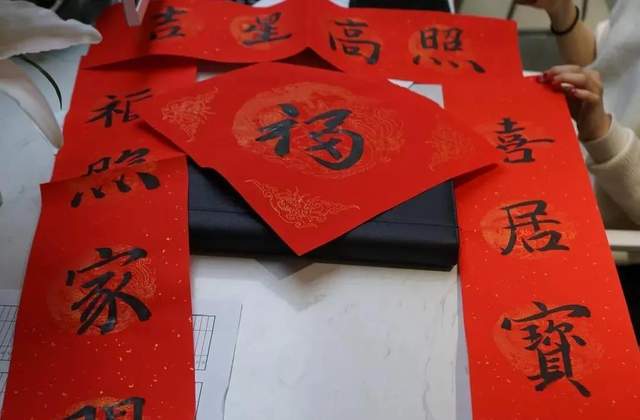 吉星高照
福
喜居寶
福照家門